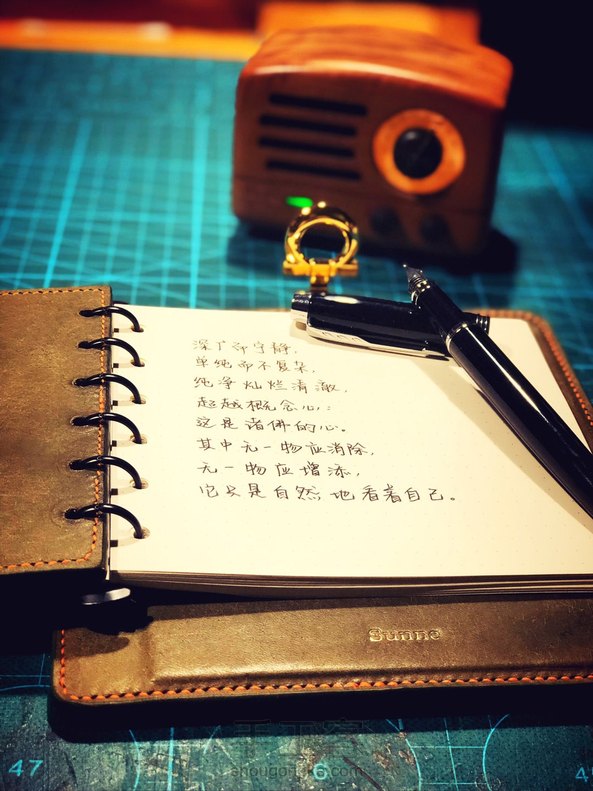 深广而宁静,
单纯而不复杂,
纯净灿烂清澈,
超越概念心;
这是诸佛的心。
其中无一物应消除,
无一物应增添,
它只是自然地看着自己。
Sunne
手工客
47